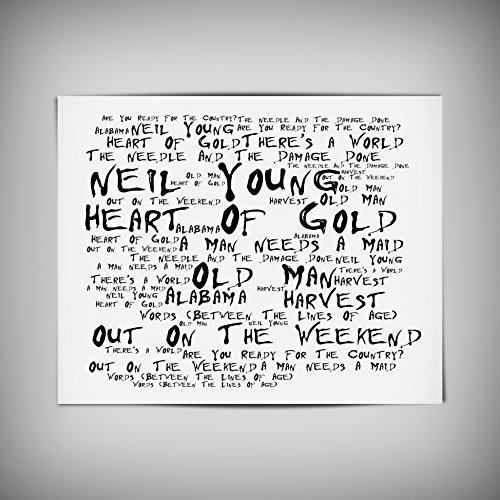 Are You Ready For The Country? The Needle And The Damage Done
Alabama Neil Young Are You Ready For The Country?
Heart Of Gold There's A World
The Needle And The Damage Done
The Needle And The Damage Done
Harvest
Neil Young
Heart Of Gold Old Man Out On The Weekend Old Man
Out On The Weekend Harvest Old Man
Heart Of Gold
Alabama Alabama
Heart Of Gold A Man Needs A Maid
Out On The Weekend
The Needle And The Damage Done Neil Young
A Man Needs A Maid Old Man There's A World
There's A World Harvest
A Man Needs A Maid Harvest
Neil Young Alabama Harvest
Heart Of Gold
Words (Between The Lines Of Age)
Old Man Neil Young
Out On The Weekend
There's A World Are You Ready For The Country?
Out On The Weekend A Man Needs A Maid
Words (Between The Lines Of Age)
Words (Between The Lines Of Age)